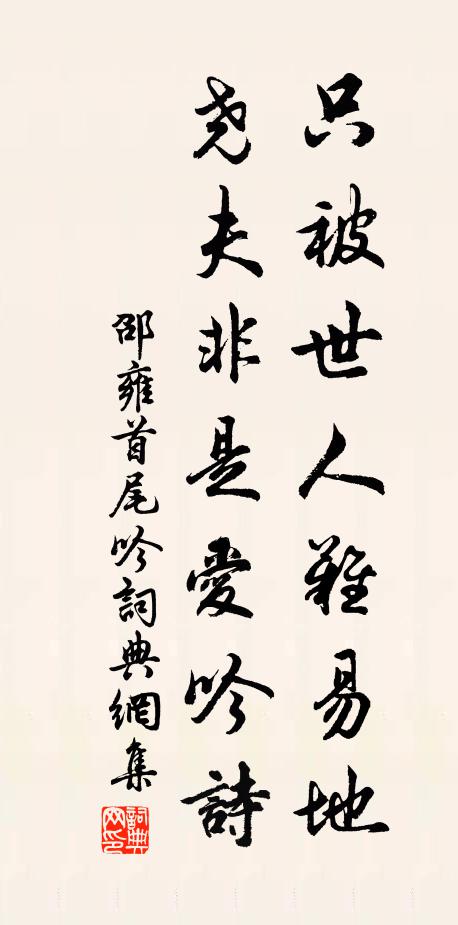 只被世人難易地
堯夫非是愛吟詩
邵雍首尾吟詞典網集
詞典网印